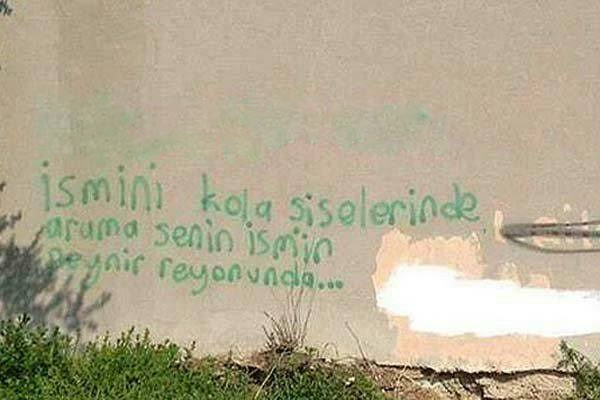 ismini kola siselerinde
aruma senin ismin
peynir reyonunda...